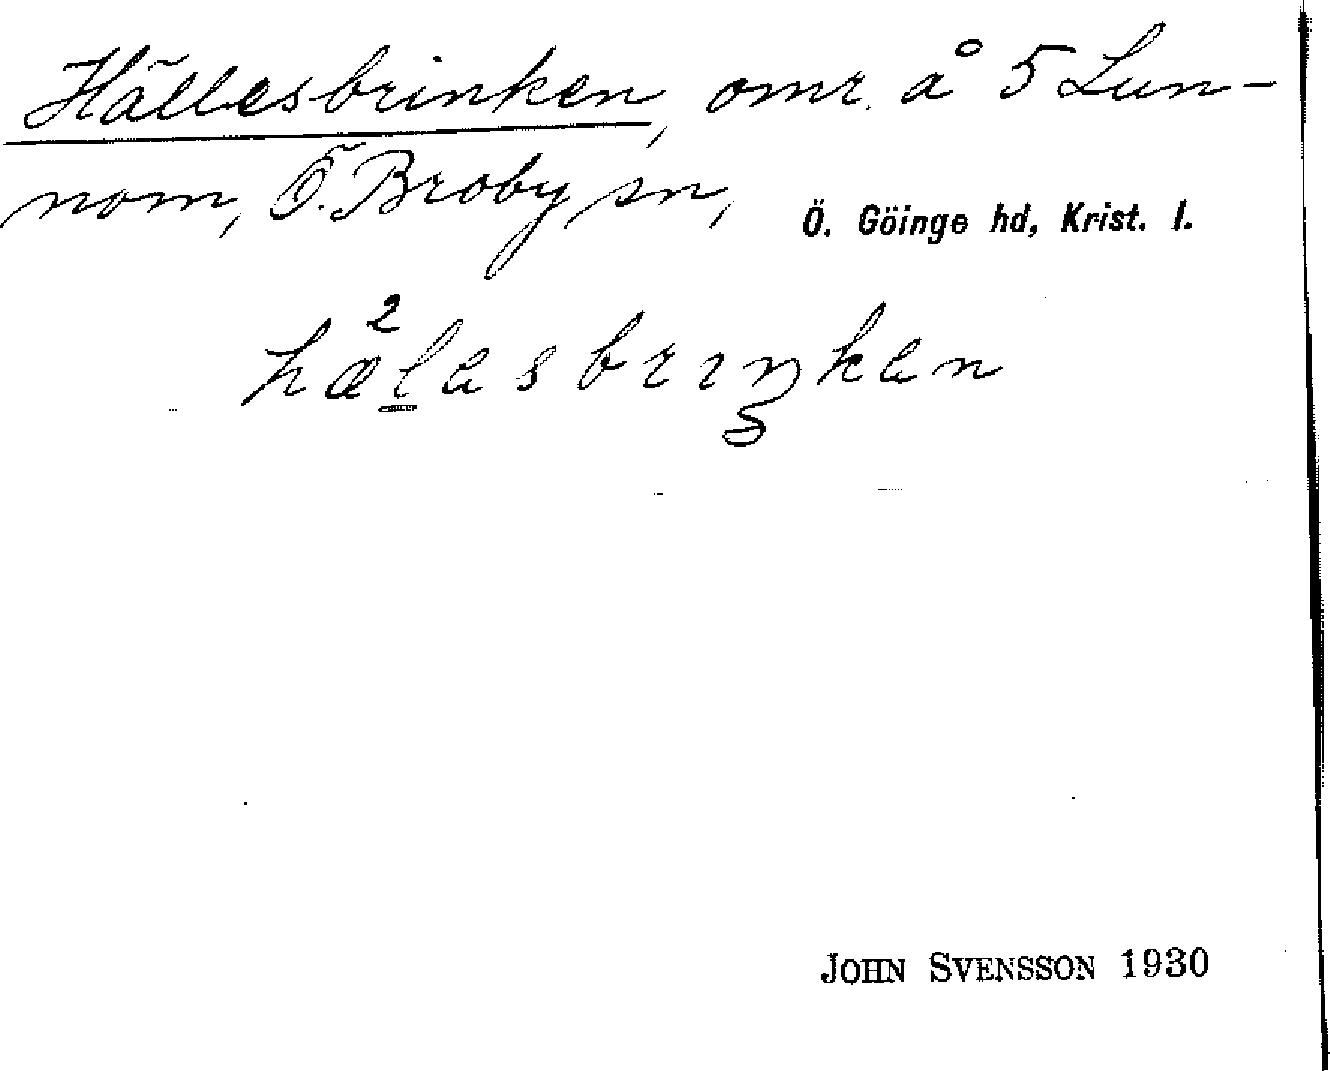 Hällesbrinken, omr. å 5 Lun-
nom, Ö. Broby sn, Ö. Göinge hd, Krist. l.
hæ²lesbrıŋken
JOHN SVENSSON 1930